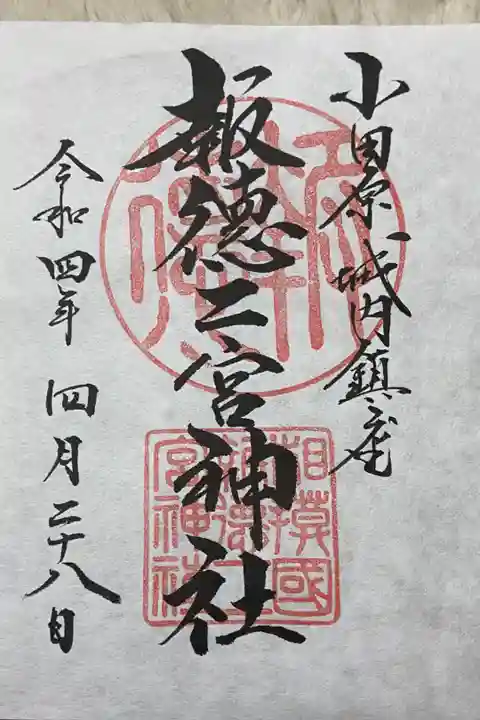 小田原城内鎮座
報徳二宮神社
令和四年 四月二十八日
相模國
報徳二
宮神社